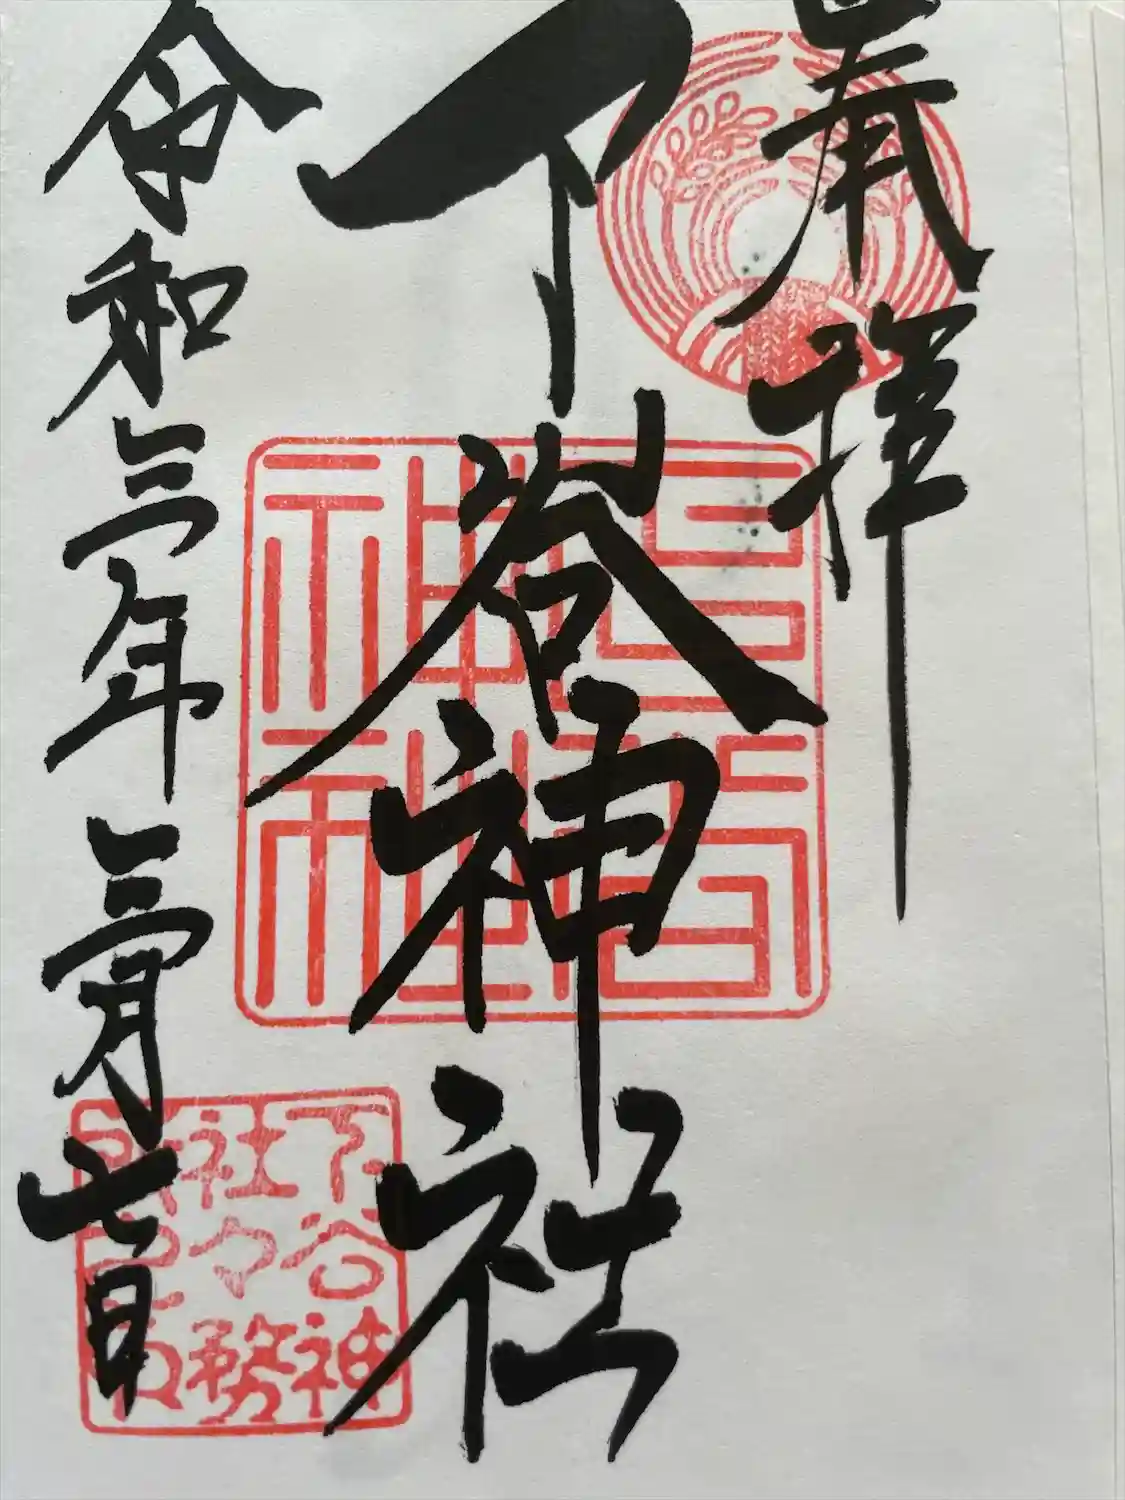 奉拝
下谷神社
令和三年三月七日
下谷神社
下谷神
社々務